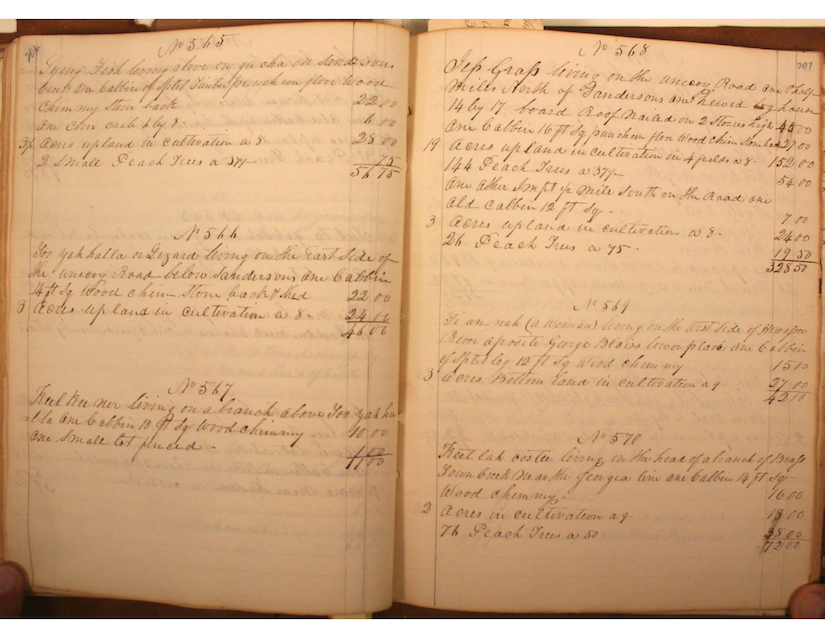 No 565
Lying Fish living above on
bank one Cabbin of Split Timber puncheon floor Wood
Chimmy Stone back 22 00
one Corn crib 6 by 8 - 6 00
3½ Acres upland in cultivation a 8 - 28 00
2 Small Peach Trees a 37½ 75
56 75
No 566
Too yah halla or Lizard living on the East Side of
the unicoy Road below Sandersons one Cabbin
14 ft Sq Wood Chim- Stone back & Shed 22 00
3 Acres upland in cultivation a 8 - 24 00
46 00
No 567
Keel kee ner living on a branch above Too yah ha
=lla one Cabbin 10 ft Sq Wood chimmy 10 00
one Small lot
11 00
201
No 568
Jess Grass living on the unicoy Road one & half
Miles North of Sandersons one hewed log house
14 by 17 board Roof Nailed on 2 Stories high 45 00
one Cabbin 16 ft Sq puncheon floor Wood Chim Stone back 27 00
19 Acres upland in cultivation in 4 fields a 8 - 152 00
144 Peach Trees a 37½ - 54 00
one other Impt ½ Mile South on the Road one
old Cabbin 12 ft Sq - 7 00
3 Acres upland in cultivation a 8 - 24 00
26 Peach Trees a 75 - 19 50
328 50
No 569
(a Woman) living on the West Side of
River aposite George Blairs lower place one Cabbin
of Split log 12 ft Sq Wood Chimmy 15 00
3 Acres Bottom land in cultivation a 9 - 27 00
42 00
No 570
Keet lah oostee living on the head of a branch of Brass
Town Creek Near the Georgia line one Cabbin 14 ft Sq
Wood Chimmy - 16 00
2 Acres in cultivation a 9 - 18 00
76 Peach Trees a 50 38 00
72 00